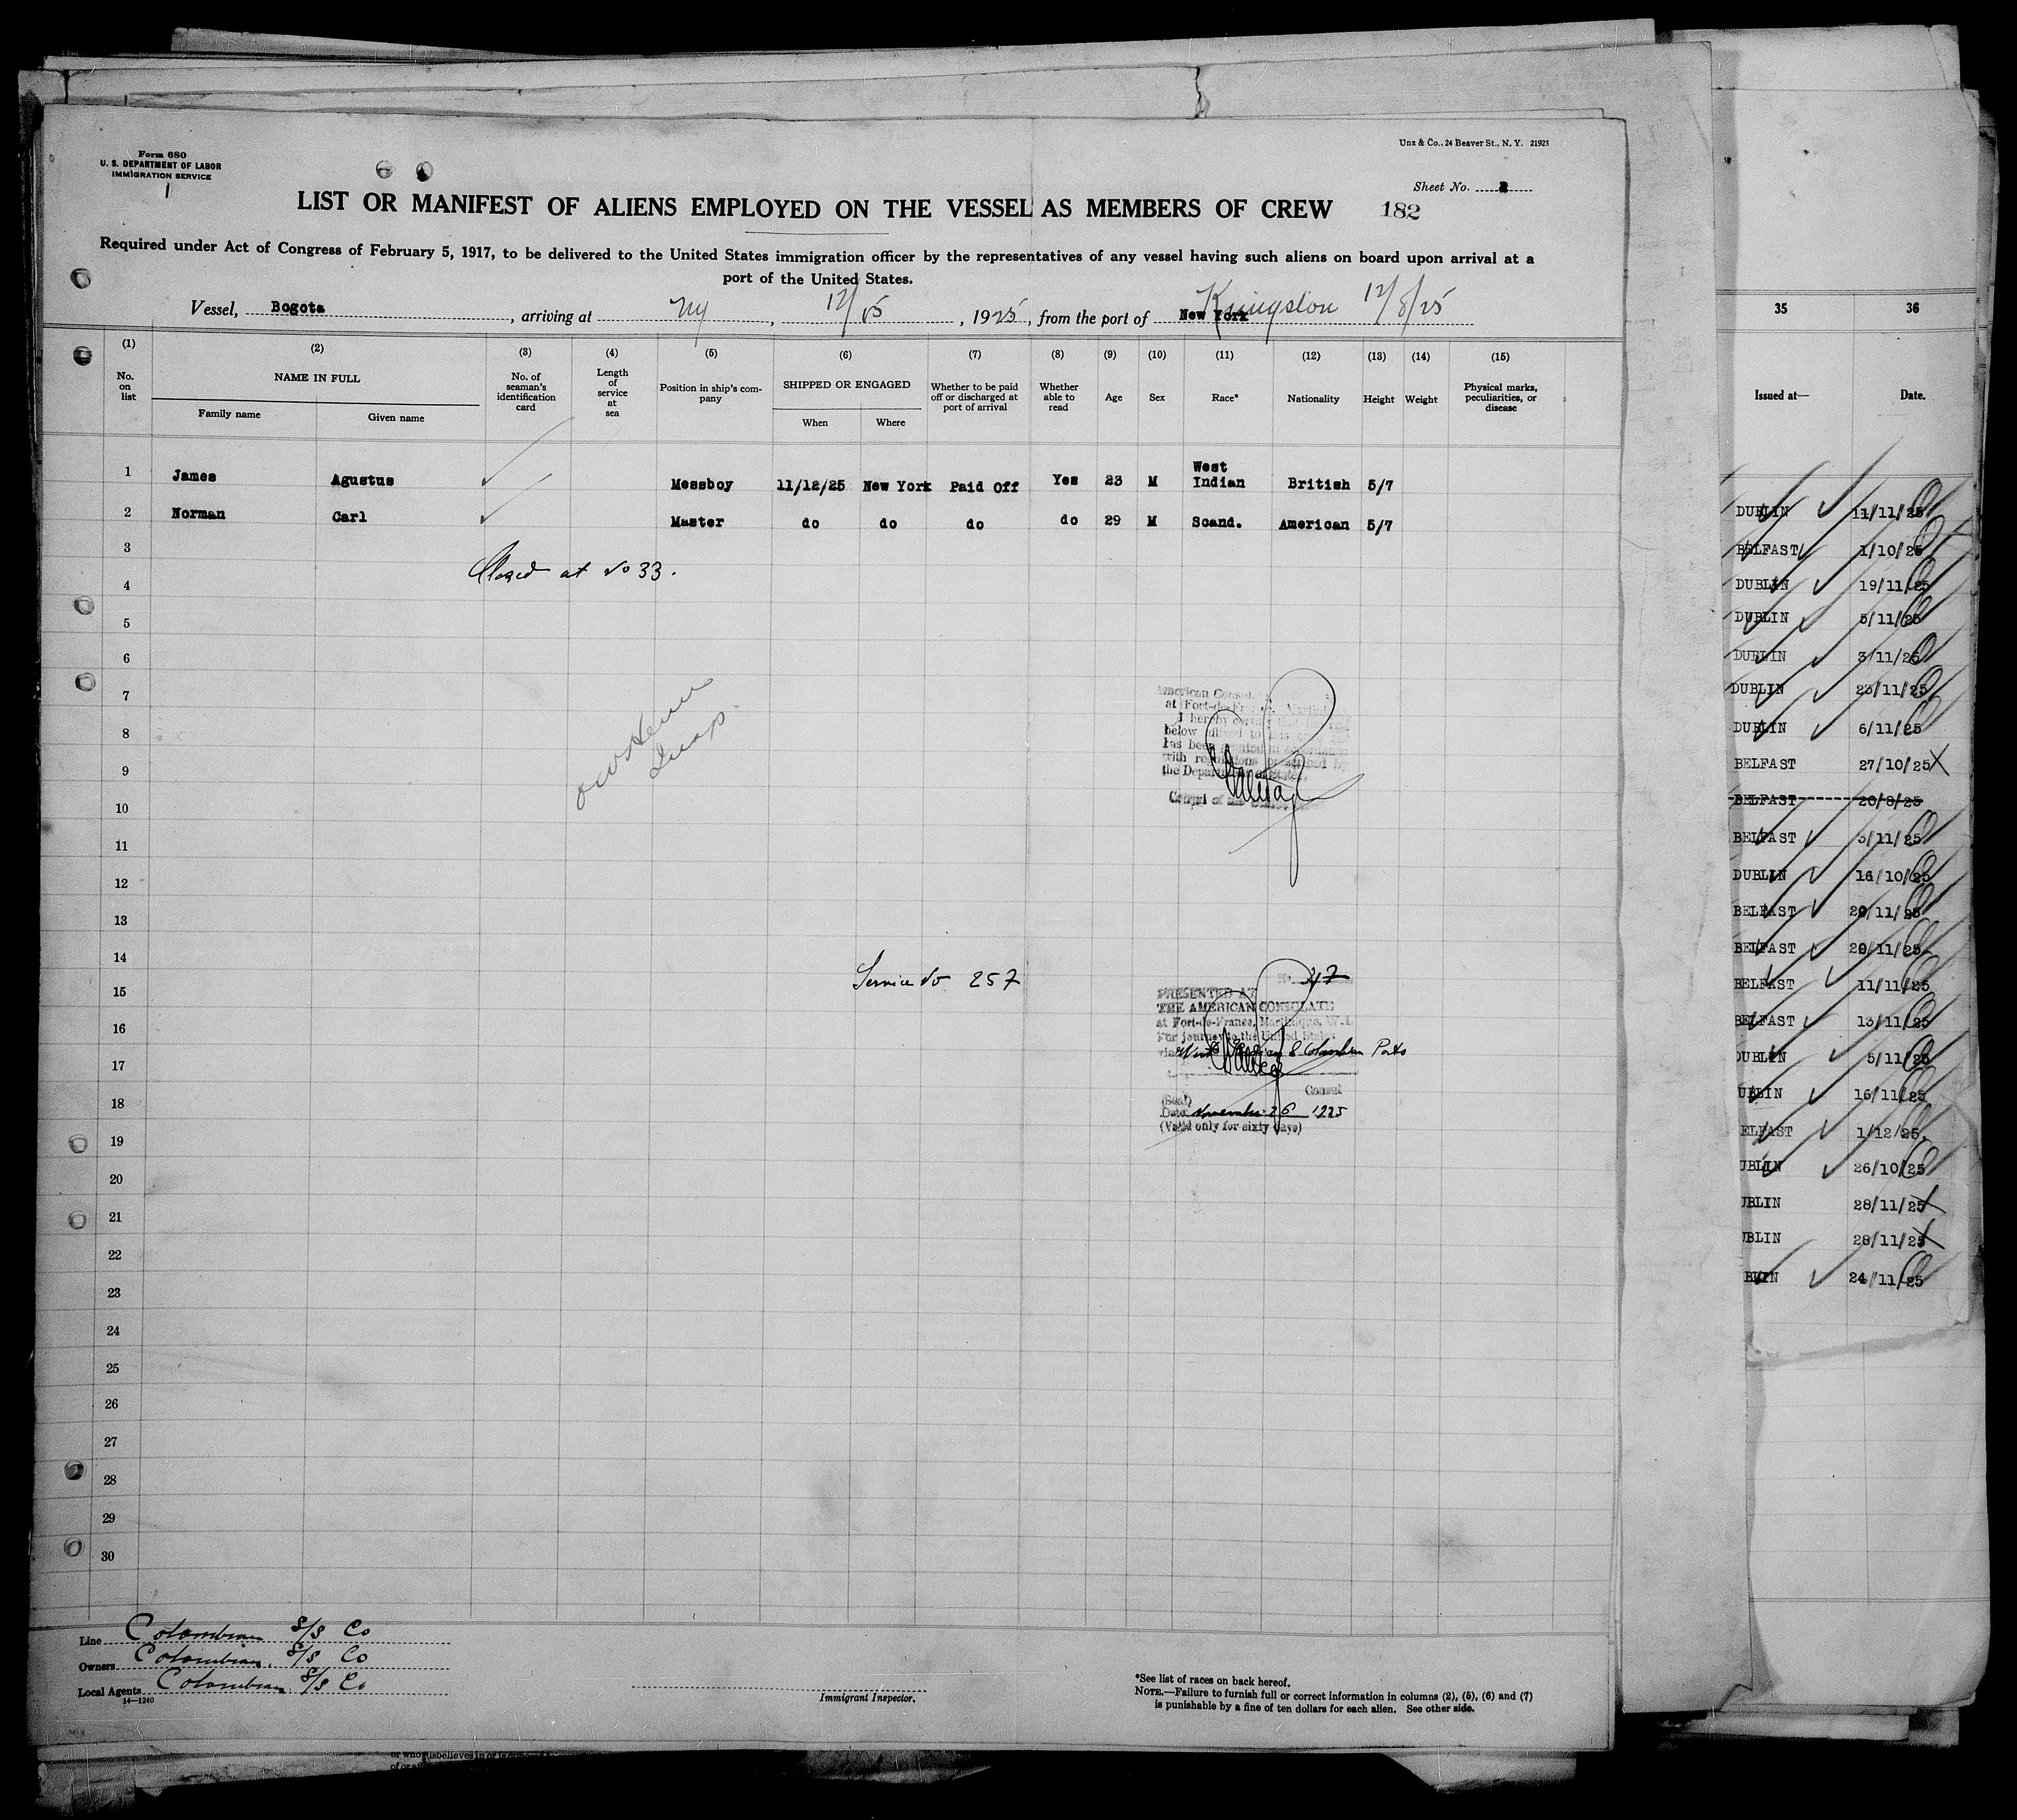 Form 680
U. S. DEPARTMENT OF LABOR
IMMIGRATION SERVICE
1
Unz & Co., 24 Beaver St., N. Y. 21923
Sheet No. 2
LIST OR MANIFEST OF ALIENS EMPLOYED ON THE VESSEL AS MEMBERS OF CREW 182
Required under Act of Congress of February 5, 1917, to be delivered to the United States immigration officer by the representatives of any vessel having such aliens on board upon arrival at a
port of the United States.
Vessel, Bogota, arriving at NY, 12/15, 1925, from the port of New York Kingston 12/8/25
(1) (2) (3) (4) (5) (6) (7) (8) (9) (10) (11) (12) (13) (14) (15)
No. on list
NAME IN FULL
Family name
Given name
No. of seaman's identification card
Length of service at sea
Position in ship's company
SHIPPED OR ENGAGED
When
Where
Whether to be paid off or discharged at port of arrival
Whether able to read
Age
Sex
Race*
Nationality
Height
Weight
Physical marks, peculiarities, or disease
1 James Agustus Messboy 11/12/25 New York Paid Off Yes 23 M West Indian British 5/7
2 Norman Carl Master do do do do 29 M Scand. American 5/7
3
Closed at No 33.
4
5
6
7
8
9
10
11
12
13
14
15
16
17
18
19
20
21
22
23
24
25
26
27
28
29
30
American
at Fort-de-
I hereby certify
below
has been
with regulations prescribed by
the Department of State,
Service No 257
No. 47
PRESENTED AT
THE AMERICAN CONSULATE
at Fort-de-France, Martinique, W.I.
For journey to the United States
via West Indian & Colombian Ports
Consul
(Seal)
Date November 26 1925
(Valid only for sixty days)
Line Colombian S/S Co
Owners Colombian S/S Co
Local Agents Colombian S/S Co
14—1240
Immigrant Inspector.
*See list of races on back hereof.
NOTE.—Failure to furnish full or correct information in columns (2), (5), (6) and (7)
is punishable by a fine of ten dollars for each alien. See other side.
35 36
Issued at— Date.
DUBLIN 11/11/25
BELFAST 1/10/25
DUBLIN 19/11/25
DUBLIN 5/11/25
DUBLIN 3/11/25
DUBLIN 23/11/25
DUBLIN 6/11/25
BELFAST 27/10/25
BELFAST 20/8/25
BELFAST 3/11/25
DUBLIN 16/10/25
BELFAST 20/11/25
BELFAST 20/11/25
BELFAST 11/11/25
BELFAST 13/11/25
DUBLIN 5/11/25
UBLIN 16/11/25
ELFAST 1/12/25.
UBLIN 26/10/25
UBLIN 28/11/25
UBLIN 28/11/25
BLIN 24/11/25